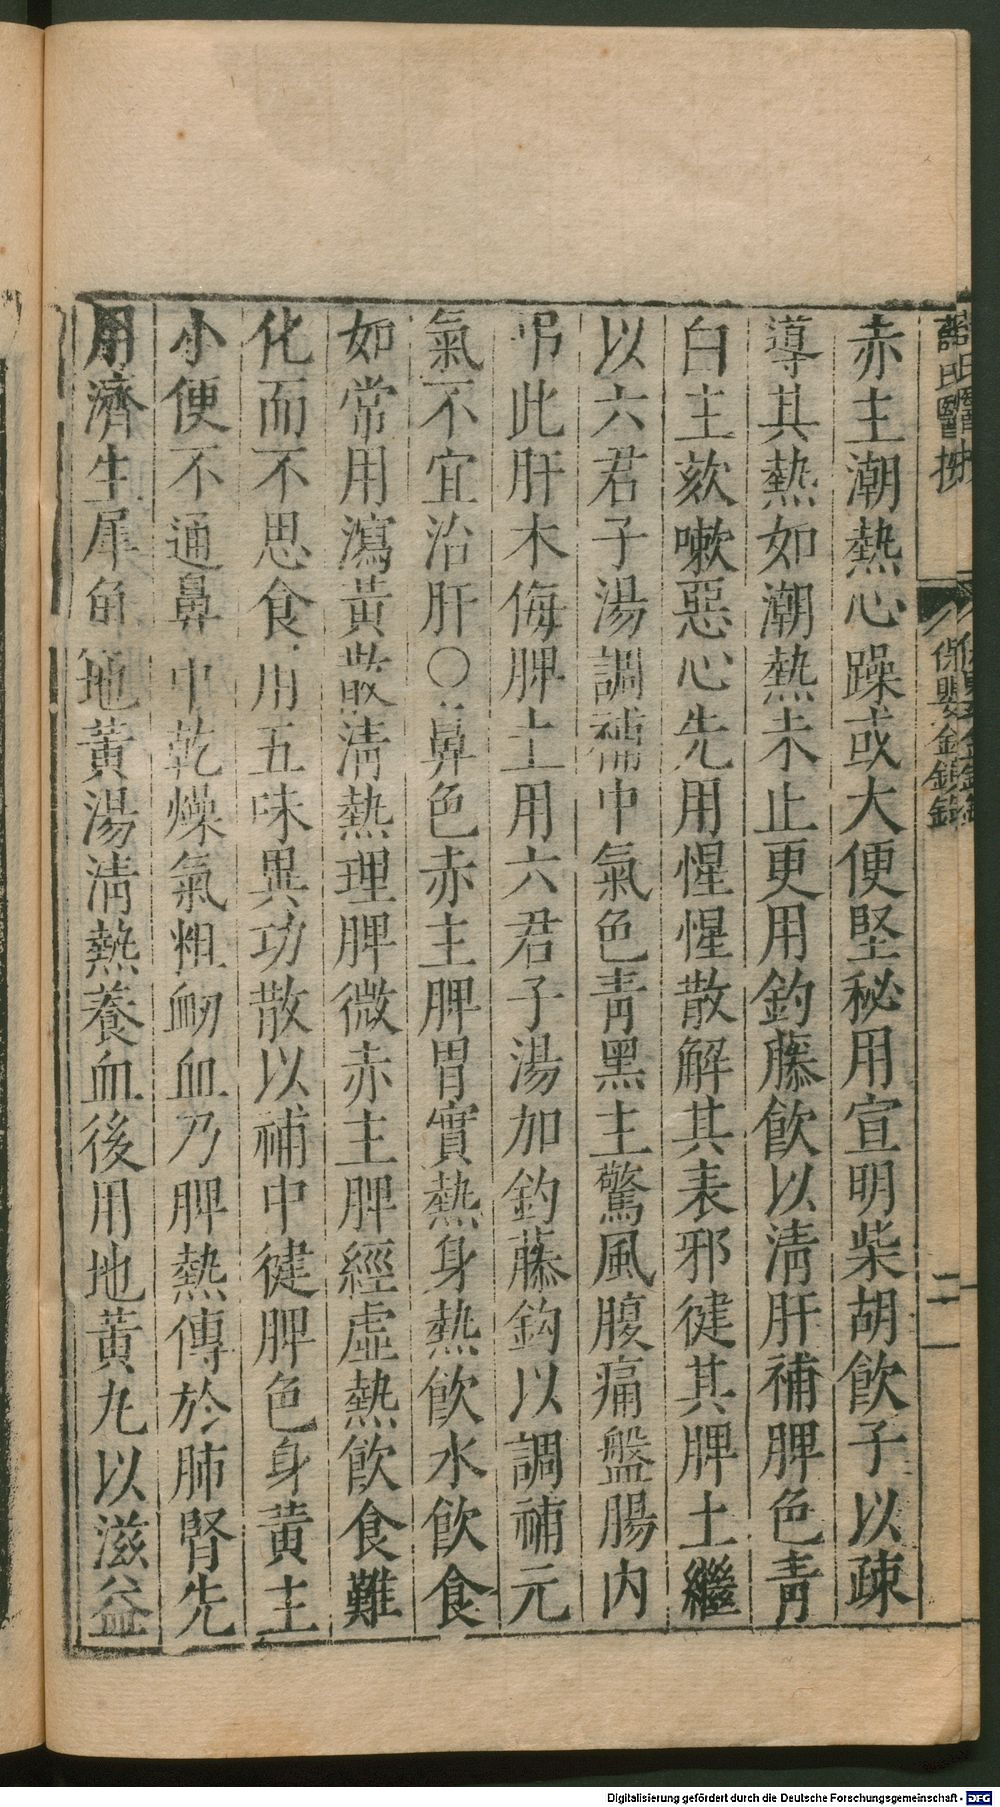 薛氏醫按
保嬰金鏡錄
二
赤主潮熱心躁或大便堅秘用宣明柴胡飲子以疎
導其熱如潮熱未止更用釣藤飲以清肝補脾色青
白主欬嗽惡心先用惺惺散解其表邪徤其脾土繼
以六君子湯調補中氣色青黑主驚風腹痛盤腸內
吊此肝木侮脾土用六君子湯加釣藤鈎以調補元
氣不宜治肝〇鼻色赤主脾胃實熱身熱飲水飲食
如常用瀉黃散清熱理脾微赤主脾經虛熱飲食難
化而不思食用五味異功散以補中徤脾色身黃主
小便不通鼻中乾燥氣粗衂血乃脾熱傳於肺腎先
用濟生犀角地黃湯清熱養血後用地黃丸以滋益
Digitalisierung gefördert durch die Deutsche Forschungsgemeinschaft - DFG